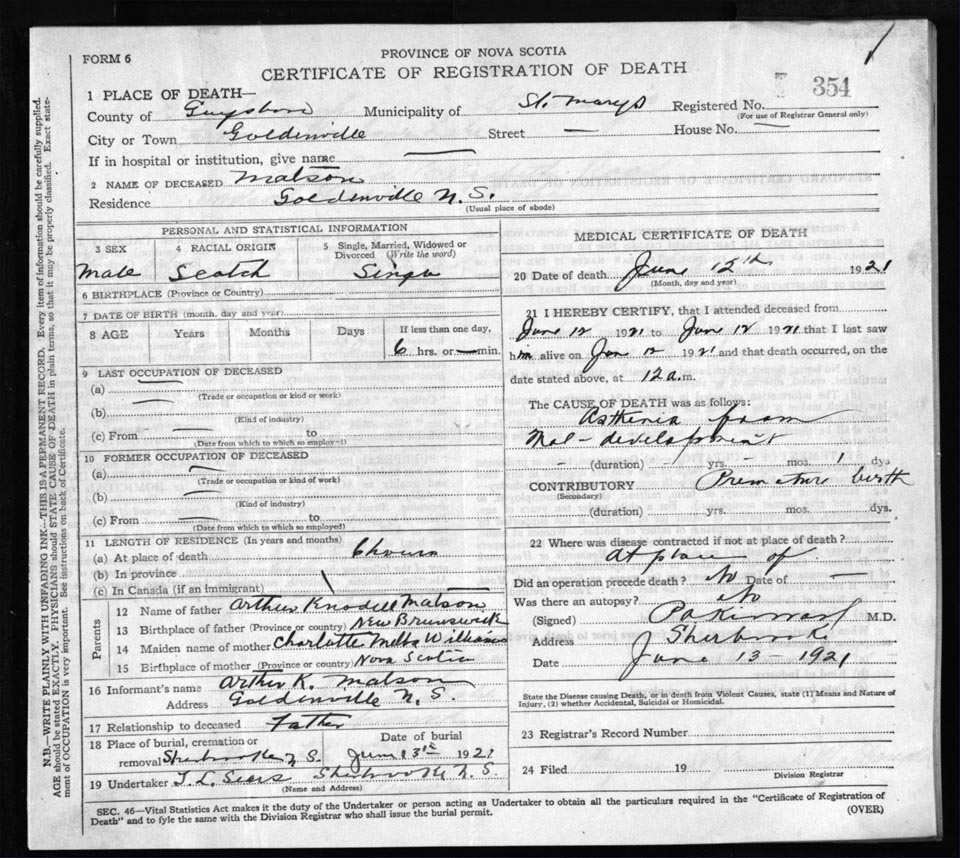 FORM 6
PROVINCE OF NOVA SCOTIA
CERTIFICATE OF REGISTRATION OF DEATH
354
1 PLACE OF DEATH—
County of Guysboro Municipality of St. Marys Registered No.
(For use of Registrar General only)
City or Town Goldenville Street — House No. —
If in hospital or institution, give name —
2 NAME OF DECEASED Matson
Residence Goldenville N. S.
(Usual place of abode)
PERSONAL AND STATISTICAL INFORMATION
3 SEX 4 RACIAL ORIGIN 5 Single, Married, Widowed or Divorced (Write the word)
Male Scotch Single
6 BIRTHPLACE (Province or Country)
7 DATE OF BIRTH (month, day and year)
8 AGE Years Months Days If less than one day,
6 hrs. or — min.
9 LAST OCCUPATION OF DECEASED
(a) —
(Trade or occupation or kind or work)
(b)
(Kind of industry)
(c) From — to
(Date from which to which so employed)
10 FORMER OCCUPATION OF DECEASED
(a) —
(Trade or occupation or kind of work)
(b) —
(Kind of industry)
(c) From — to
(Date from which to which so employed)
11 LENGTH OF RESIDENCE (In years and months)
(a) At place of death 6 hours
(b) In province
(c) In Canada (if an immigrant)
Parents
12 Name of father Arthur Knodell Matson
13 Birthplace of father (Province or country) New Brunswick
14 Maiden name of mother Charlotte Melba Williams
15 Birthplace of mother (Province or country) Nova Scotia
16 Informant's name Arthur K. Matson
Address Goldenville N. S.
17 Relationship to deceased Father
18 Place of burial, cremation or removal Sherbrooke N. S. Date of burial June 13th 1921
19 Undertaker T. L. Sears Sherbrooke N. S.
(Name and Address)
MEDICAL CERTIFICATE OF DEATH
20 Date of death June 12th 1921
(Month, day and year)
21 I HEREBY CERTIFY, that I attended deceased from
June 12 1921 to June 12 1921 that I last saw
him alive on June 12 1921 and that death occurred, on the
date stated above, at 12 a.m.
The CAUSE OF DEATH was as follows:
Asthenia from
Mal-development
— (duration) — yrs. — mos. 1 dys
CONTRIBUTORY Premature birth
(Secondary)
(duration) yrs. mos. dys.
22 Where was disease contracted if not at place of death?
At place of
Did an operation precede death? No Date of —
Was there an autopsy? No
(Signed) M.D.
Address Sherbrooke
Date June 13 - 1921
State the Disease causing Death, or in death from Violent Causes, state (1) Means and Nature of
Injury, (2) whether Accidental, Suicidal or Homicidal.
23 Registrar's Record Number
24 Filed 19
Division Registrar
SEC. 46—Vital Statistics Act makes it the duty of the Undertaker or person acting as Undertaker to obtain all the particulars required in the "Certificate of Registration of
Death" and to fyle the same with the Division Registrar who shall issue the burial permit.
(OVER)
N.B.—WRITE PLAINLY WITH UNFADING INK—THIS IS A PERMANENT RECORD. Every item of information should be carefully supplied.
AGE should be stated EXACTLY. PHYSICIANS should STATE CAUSE OF DEATH in plain terms, so that it may be properly classified. Exact state-
ment of OCCUPATION is very important. See instructions on back of Certificate.